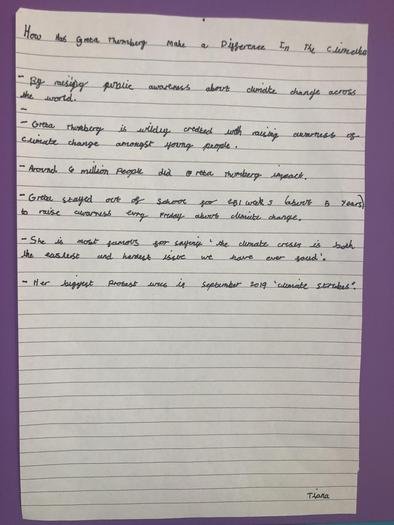 How Has Greta Thunberg Make a Difference In The Climate
- By raising public awareness about climate change across
the world.
-
- Greta Thunberg is wildly credited with raising awarness of
climate change amongst young people.
- Around 6 million people did Greta Thunberg impact.
- Greta stayed out of school for 251 week s (about 5 years)
to raise awarness evry Friday about climate change.
- She is most famous for saying 'the climate crisis is both
the easiest and hardest issue we have ever faced'.
- Her biggest Protest was in September 2019 'climate strikes'.
Tiana